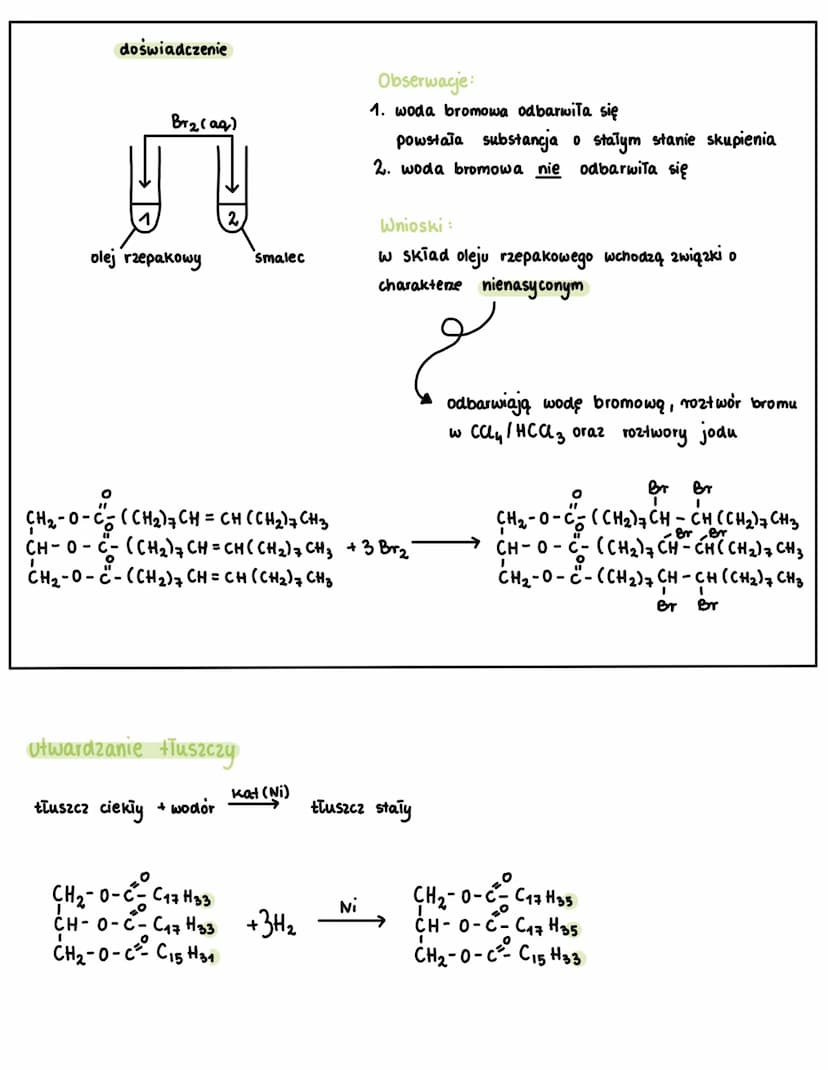 doświadczenie
Br2(aq)
1
2
olej rzepakowy
smalec
Obserwacje:
1. woda bromowa odbarwiła się
powstała substancja o stałym stanie skupienia
2. woda bromowa nie odbarwiła się
Wnioski:
w skład oleju rzepakowego wchodzą związki o
charakterze nienasyconym
odbarwiają wodę bromową, roztwór bromu
w CCl4/HCCl3 oraz roztwory jodu
O
CH2-O-C-(CH2)7CH=CH(CH2)7CH3
O
CH-O-C-(CH2)7CH=CH(CH2)7CH3 +3Br2 →
O
CH2-O-C-(CH2)7CH=CH(CH2)7CH3
Br Br
O
CH2-O-C-(CH2)7CH-CH(CH2)7CH3
O Br Br
CH-O-C-(CH2)7CH-CH(CH2)7CH3
O
CH2-O-C-(CH2)7CH-CH(CH2)7CH3
Br Br
utwardzanie tłuszczy
kat(Ni)
tłuszcz ciekły + wodór → tłuszcz stały
O
CH2-O-C-C17H33
O
CH-O-C-C17H33
O
CH2-O-C-C15H31
+3H2
Ni
→
O
CH2-O-C-C17H35
O
CH-O-C-C17H35
O
CH2-O-C-C15H33